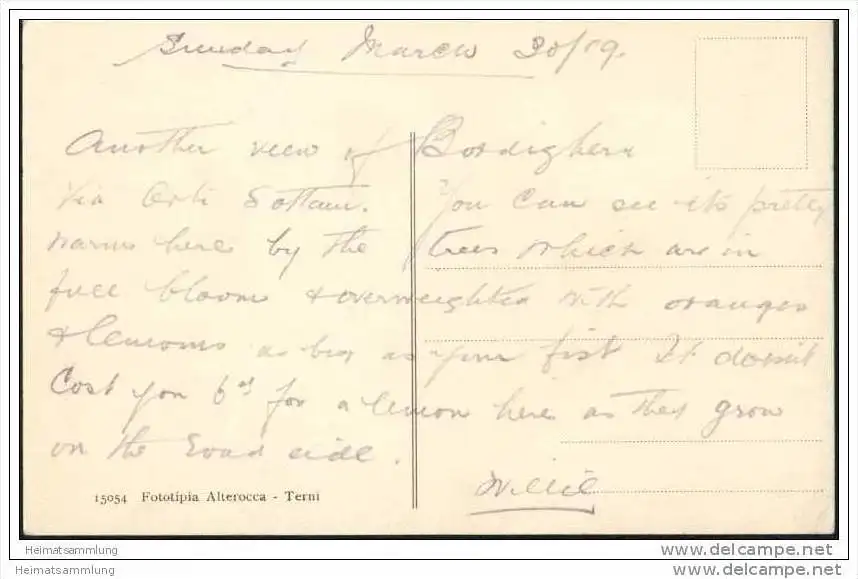 Sunday March 30/19.
Another view of Bordighera
Via Orti Sottani. You can see its pretty
warm here by the trees which are in
full bloom & overweighted with oranges
& lemons as big as your fist It doesnt
Cost you 6d for a lemon here as they grow
on the road side.
Willie
15054 Fototípia Alterocca - Terni
Heimatsammlung
Heimatsammlung
www.delcampe.net
www.delcampe.net